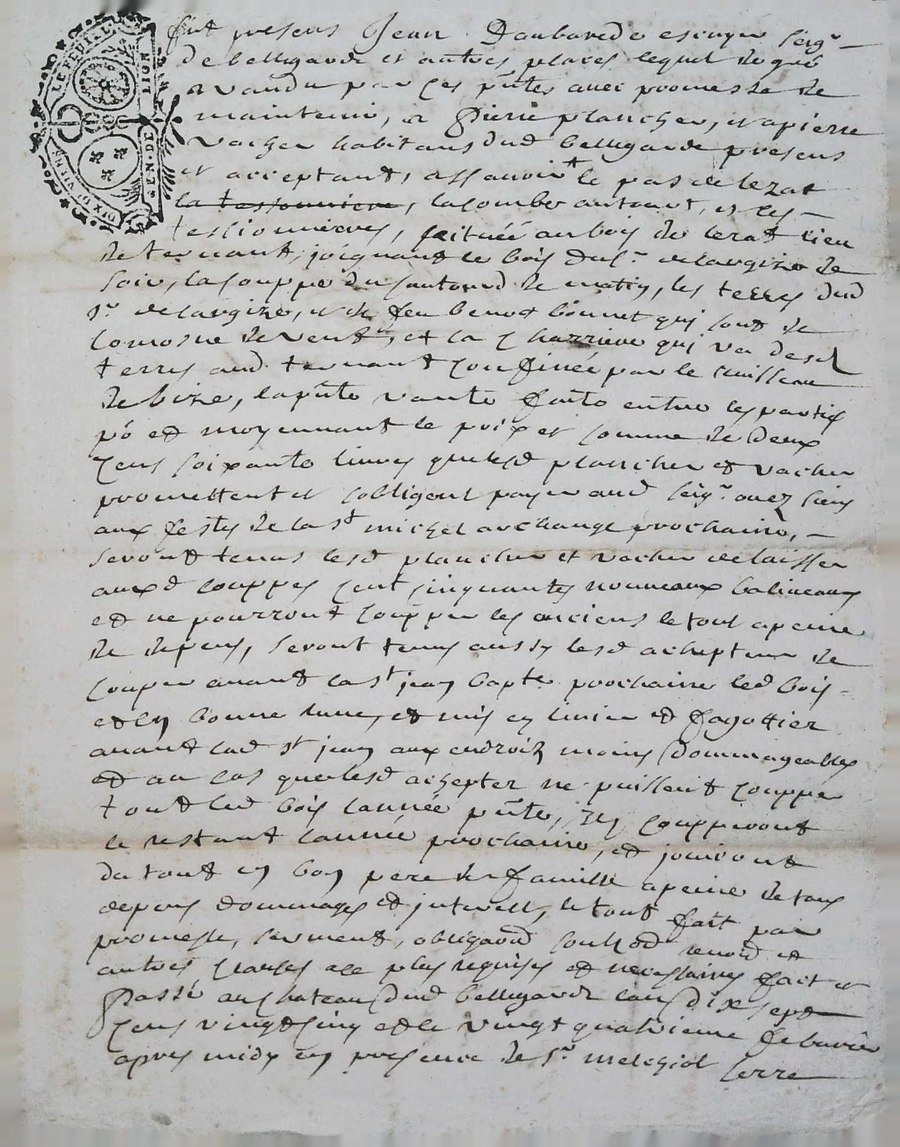 fut presens Jean Daubarede escuyer seigr
de bellegarde et autres places lequel de gré
a vandu par ces pntes avec promesse de
maintenir, a pierre plancher, et a pierre
vacher habitans dud bellegarde presens
et acceptants, assavoir le pas de lezat
la tessonniere, la combe au tenant, et les
tessonnieres, scituée au bois de lezat lieu
de tenant, joignant le bois du sr delargize de
soir, la couppe du de matin, les terres dud
sr delargize, et de feu benoit bonnet qui sont de
lomosne de vent, et la charriere qui va desd
terres aud tenant confinée par le ruisseau
de bize, la pnte vante faite entre les parties
po et moyennant le prix et somme de deux
cens soixante livres que lesd plancher et vacher
promettent et sobligent payer aud seigr avez siens
aux festes de la st michel archange prochaine,
seront tenus lesd plancher et vacher de laisser
auxd couppes cent cinquantes nouveaux baliveaux
et ne pourront coupper les anciens le tout a peine
de depens, seront tenus aussy lesd achepteur de
couper avant la st jean bapte prochaine led bois
et en bonne lune, et mis en et fagottier
avant lad st jean aux endroiz moins dommageables
et au cas que lesd achepter ne puissent coupper
tout led bois lannée pnte, ilz coupperont
le restant lannée prochaine, et jouiront
du tout en bon pere de famille a peine de tous
depens dommages et interest, le tout fait par
promesse, serment, obligaon soubzon renon et
autres clauses a ce plus requises et necessaires fait et
passé au chateau dud bellegarde lan dix sept
cens vingt cinq et le vingt quatrieme febvrier
apres midy en presence de sr serre
LEFEUIL
LION
GEN. DE
DIX DU VILAIN